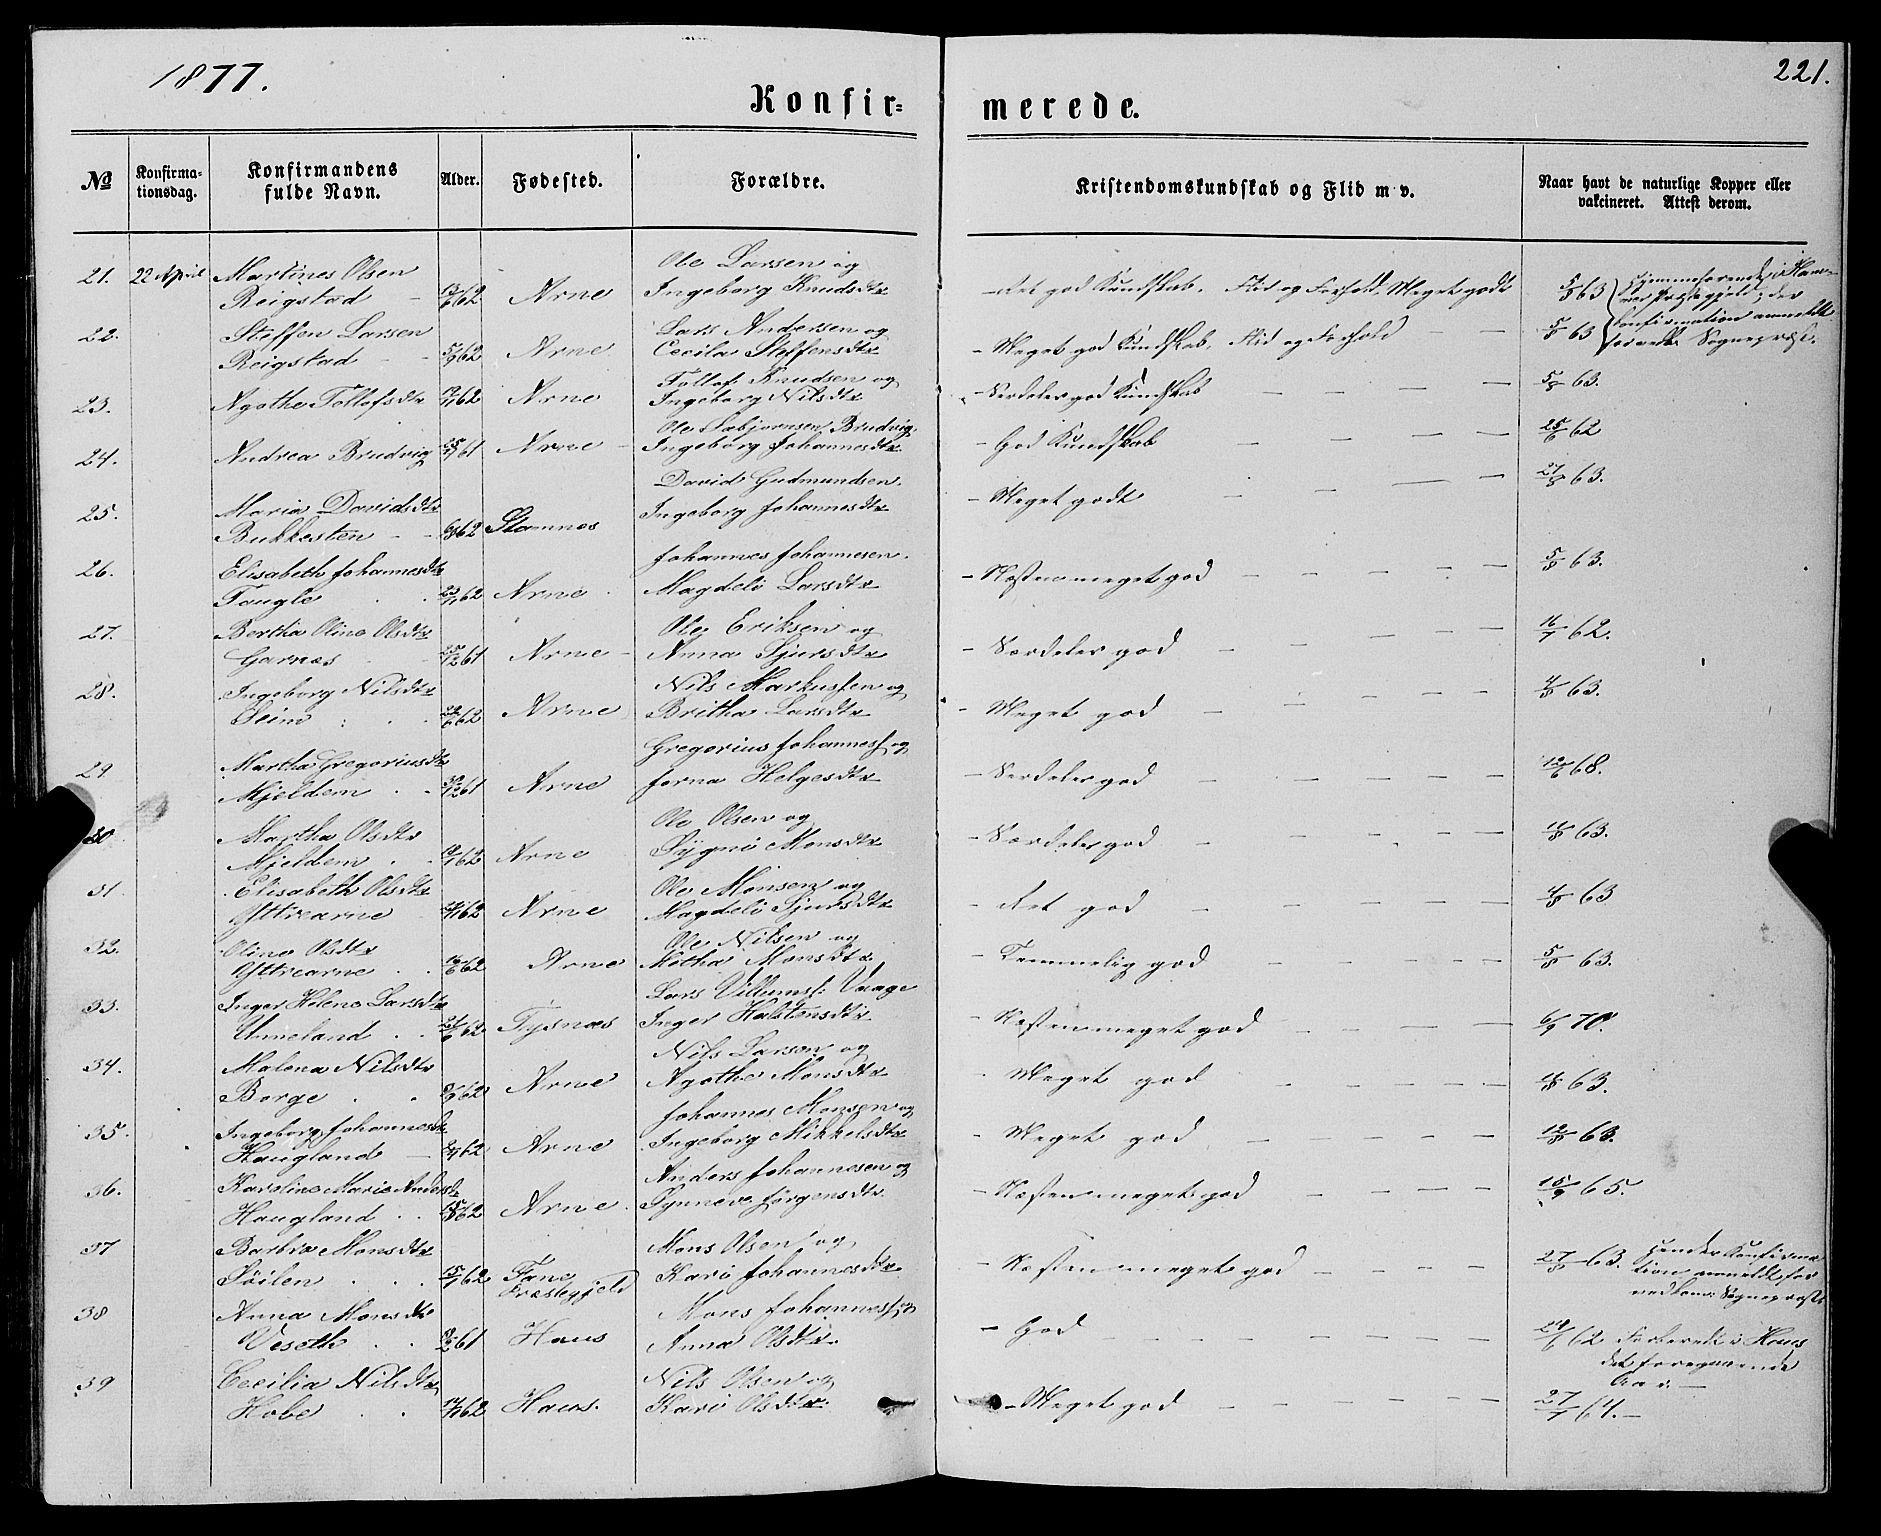 1877.
221.
Konfir=
merede.
No
Konfirma-
tionsdag.
Konfirmandens
fulde Navn.
Alder.
Fødested.
Forældre.
Kristendomskundskab og Flid m v.
Naar havt de naturlige Kopper eller
vakcineret. Attest derom.
21. 22 April Martines Olsen
Reigstad 13/6 62 Arne
Ole Larsen og
Ingeborg Knudsdtr
Ret god Kundskab. Flid og Forhold. Meget godt
5/8 63
22. Steffen Larsen
Reigstad 5/9 62 Arne
Lars Andersen og
Cecila Steffensdtr
Meget god Kundskab. Flid og Forhold
5/8 63
Confirmation anmeldt
Sognepræst.
23. Agathe Tollofsdtr 62 Arne
Tollof Knudsen og
Ingeborg Nilsdtr
Serdeles god Kundskab
5/8 63.
24. Andrea Brudvig 61 Arne
Ole Brudvig
Ingeborg Johannesdtr
God Kundskab
25/6 62
25. Maria Davidsdtr
Bukkesten 62 Stamnes
David Gudmundsen.
Ingeborg Johannesdtr
Meget godt
27/8 63.
26. Elisabeth Johannesdtr
Tangle 23/11 62 Arne
Johannes Johannesen.
Magdeli Larsdtr
Næsten meget god
5/8 63.
27. Bertha Oline Olsdtr
Garnes 25/12 61 Arne
Ole Eriksen og
Anna Sjursdtr
Særdeles god
16/7 62.
28. Ingeborg Nilsdtr
Seim 62 Arne
Nils Markussen og
Britha Larsdtr
Meget god
4/8 63.
29 Martha Gregoriusdtr
Mjeldem 30/12 61 Arne
Gregorius Johannes og
Jorna Helgesdtr
Serdeles god
12/6 68.
30 Martha Olsdtr
Mjeldem 62 Arne
Ole Olsen og
Sygni Monsdtr
Særdeles god
11/8 63.
31 Elisabeth Olsdtr
Yttrearne 62 Arne
Ole Monsen og
Magdeli Sjursdtr
Ret god
4/8 63
32. Oline Olsdtr
Yttrearne 16/6 62 Arne
Ole Nilsen og
Metha Monsdtr
Temmelig god
5/8 63.
33. Inger Helene Larsdtr
Unneland 62 Tysnæs
Lars Villums: Vaage
Inger Halstensdtr
Næsten meget god
6/9 70.
34. Malena Nilsdtr
Borge 62 Arne
Nils Larsen og
Agathe Monsdtr
Meget god
63.
35. Ingeborg Johannesdtr
Haugland 62 Arne
Johannes Monsen og
Ingeborg Mikkelsdtr
Meget god
12/8 63.
36. Karoline Marie Andersdt
Haugland 62 Arne
Anders Johannesen og
Synneve Jørgensdtr
Næsten meget god
15/9 65.
37 Barbra Monsdtr
Søilen 15/1 62 Fane
Præstegjeld
Mons Olsen og
Kari Johannesdtr
Næsten meget god
27/8 63. Hendes Konfirma
tion anmeldt for
vedkom: Sognepræst
38 Anna Monsdtr
Veseth 61 Haus
Mons Johannes og
Anna Olsdtr
God
62 i Haus
det foregaaende
Aar.
39 Cecilia Nilsdtr
Hobe 62 Haus.
Nils Olsen og
Kari Olsdtr
Meget god
27/7 64.